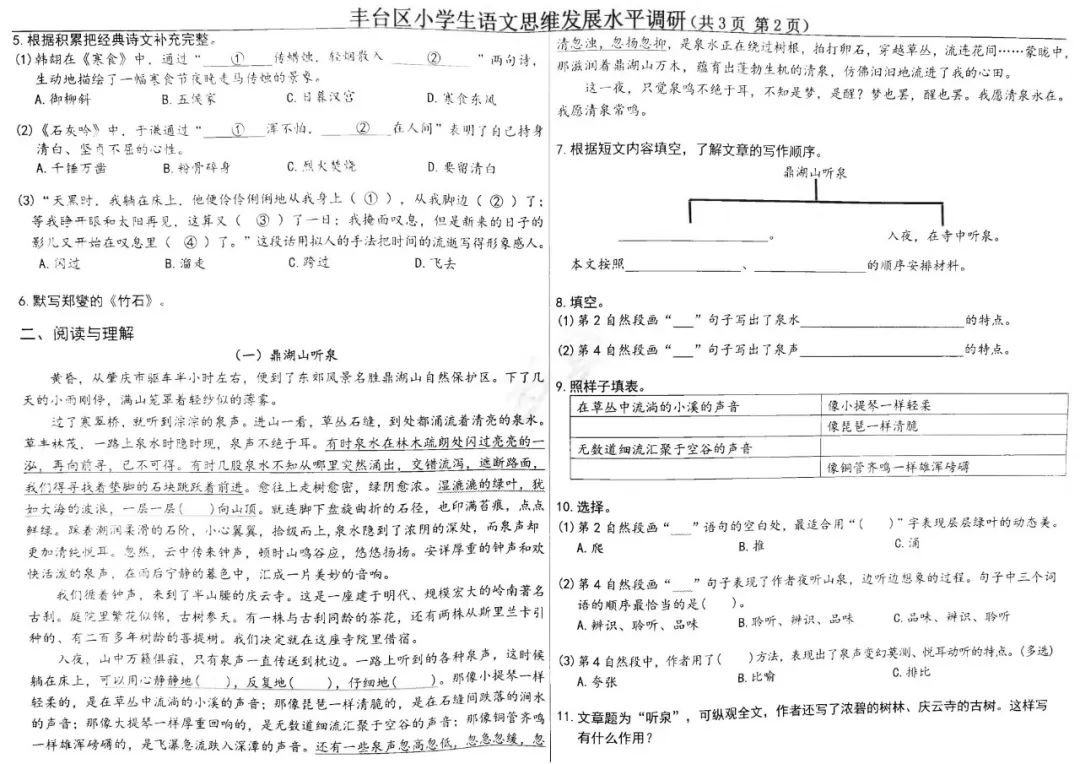 丰台区小学生语文思维发展水平调研(共3页 第2页)
5. 根据积累把经典诗文补充完整。
(1) 韩翃在《寒食》中，通过“ ① 传蜡烛，轻烟散入 ② ”两句诗，
生动地描绘了一幅寒食节夜晚走马传烛的景象。
A. 御柳斜 B. 五侯家 C. 日暮汉宫 D. 寒食东风
(2)《石灰吟》中，于谦通过“ ① 浑不怕， ② 在人间”表明了自己持身
清白、坚贞不屈的心性。
A. 千锤万凿 B. 粉骨碎身 C. 烈火焚烧 D. 要留清白
(3)“天黑时，我躺在床上，他便伶伶俐俐地从我身上（ ① ），从我脚边（ ② ）了；
等我睁开眼和太阳再见，这算又（ ③ ）了一日；我掩面叹息，但是新来的日子的
影儿又开始在叹息里（ ④ ）了。”这段话用拟人的手法把时间的流逝写得形象感人。
A. 闪过 B. 溜走 C. 跨过 D. 飞去
6. 默写郑燮的《竹石》。
二、阅读与理解
（一）鼎湖山听泉
黄昏，从肇庆市驱车半小时左右，便到了东郊风景名胜鼎湖山自然保护区。下了几
天的小雨刚停，满山笼罩着轻纱似的薄雾。
过了寒翠桥，就听到淙淙的泉声。进山一看，草丛石缝，到处都涌流着清亮的泉水。
草丰林茂，一路上泉水时隐时现，泉声不绝于耳。有时泉水在林木疏朗处闪过亮亮的一
泓，再向前寻，已不可得。有时几股泉水不知从哪里突然涌出，交错流泻，遮断路面，
我们得寻找着垫脚的石块跳跃着前进。愈往上走树愈密，绿阴愈浓。湿漉漉的绿叶，犹
如大海的波浪，一层一层( )向山顶。就连脚下盘旋曲折的石径，也印满苔痕，点点
鲜绿。踩着潮润柔滑的石阶，小心翼翼，拾级而上，泉水隐到了浓阴的深处，而泉声却
更加清纯悦耳。忽然，云中传来钟声，顿时山鸣谷应，悠悠扬扬。安详厚重的钟声和欢
快活泼的泉声，在雨后宁静的暮色中，汇成一片美妙的音响。
我们循着钟声，来到了半山腰的庆云寺。这是一座建于明代、规模宏大的岭南著名
古刹。庭院里繁花似锦，古树参天。有一株与古刹同龄的茶花，还有两株从斯里兰卡引
种的、有二百多年树龄的菩提树。我们决定就在这座寺院里借宿。
入夜，山中万籁俱寂，只有泉声一直传送到枕边。一路上听到的各种泉声，这时候
躺在床上，可以用心静静地( )，反复地( )，仔细地( )。那像小提琴一样
轻柔的，是在草丛中流淌的小溪的声音；那像琵琶一样清脆的，是在石缝间跌落的涧水
的声音；那像大提琴一样厚重回响的，是无数道细流汇聚于空谷的声音；那像铜管齐鸣
一样雄浑磅礴的，是飞瀑急流跌入深潭的声音。还有一些泉声忽高忽低，忽急忽缓，忽
清忽浊，忽扬忽抑，是泉水正在绕过树根，拍打卵石，穿越草丛，流连花间……蒙眬中，
那滋润着鼎湖山万木，蕴育出蓬勃生机的清泉，仿佛汩汩地流进了我的心田。
这一夜，只觉泉鸣不绝于耳，不知是梦，是醒？梦也罢，醒也罢。我愿清泉永在。
我愿清泉常鸣。
7. 根据短文内容填空，了解文章的写作顺序。
鼎湖山听泉
。 入夜，在寺中听泉。
本文按照 、 的顺序安排材料。
8. 填空。
(1) 第2自然段画“__”句子写出了泉水 的特点。
(2) 第4自然段画“__”句子写出了泉声 的特点。
9. 照样子填表。
在草丛中流淌的小溪的声音 像小提琴一样轻柔
像琵琶一样清脆
无数道细流汇聚于空谷的声音
像铜管齐鸣一样雄浑磅礴
10. 选择。
(1) 第2自然段画“__”语句的空白处，最适合用“( )”字表现层层绿叶的动态美。
A. 爬 B. 推 C. 涌
(2) 第4自然段画“__”句子表现了作者夜听山泉，边听边想象的过程。句子中三个词
语的顺序最恰当的是( )。
A. 辨识、聆听、品味 B. 聆听、辨识、品味 C. 品味、辨识、聆听
(3) 第4自然段中，作者用了( )方法，表现出了泉声变幻莫测、悦耳动听的特点。(多选)
A. 夸张 B. 比喻 C. 排比
11. 文章题为“听泉”，可纵观全文，作者还写了浓碧的树林、庆云寺的古树。这样写
有什么作用？